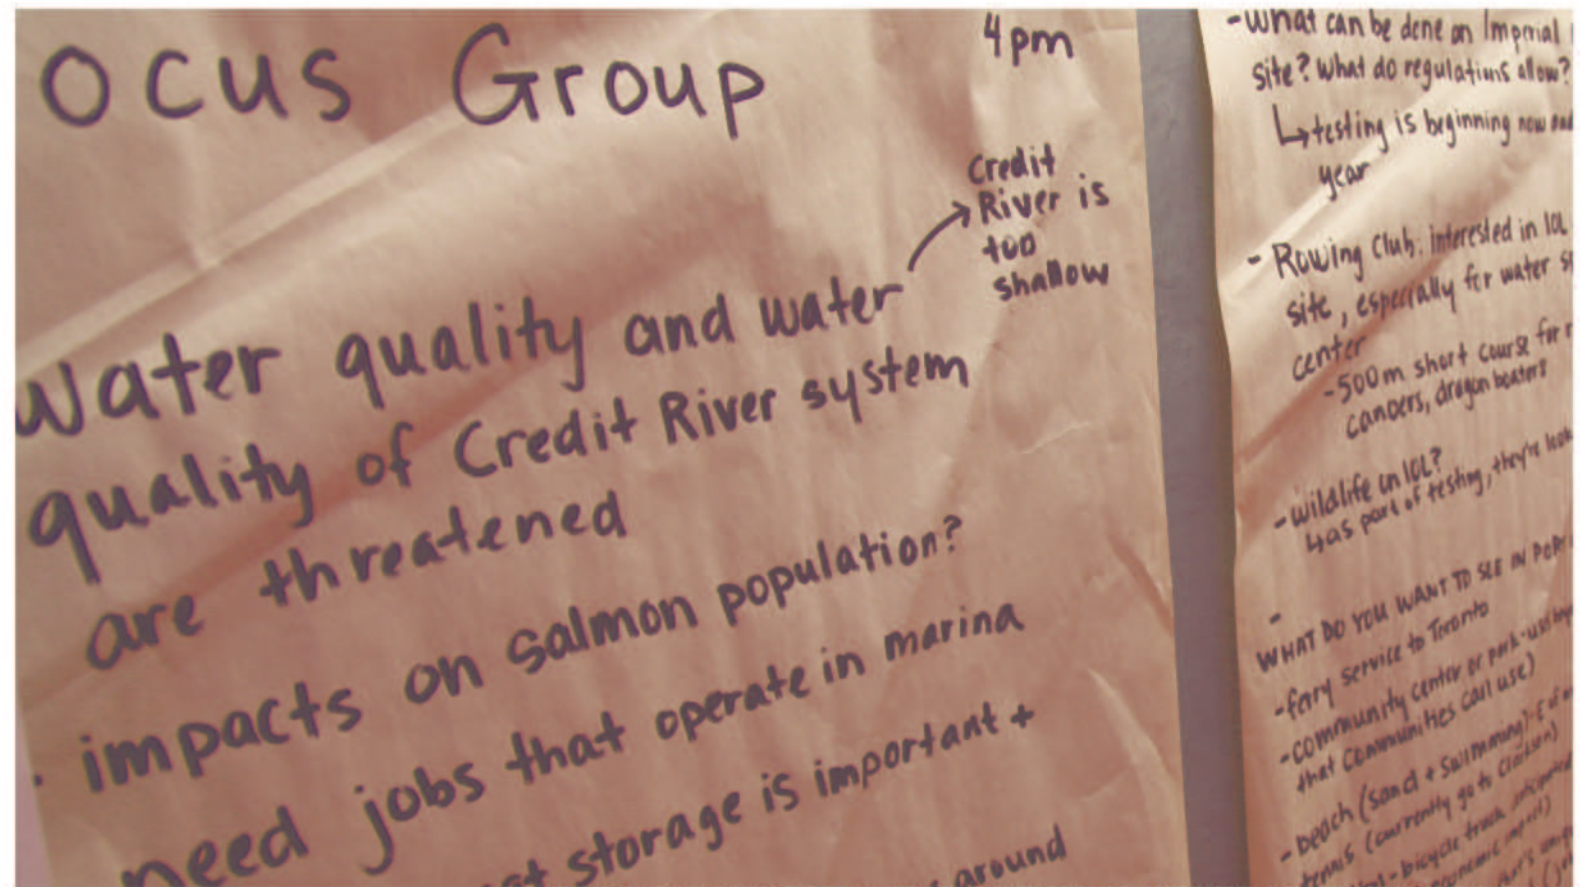 ocus Group
4pm
Credit
River is
too
shallow
Water quality and water
quality of Credit River system
are threatened
· impacts on salmon population?
need jobs that operate in marina
storage is important +
around
- What can be done on Imperial
site? What do regulations allow?
↳ testing is beginning now and
year
- Rowing Club: interested in IOL
site, especially for water
center
- 500m short course for
canoers, dragon boaters
- wildlife on IOL?
↳ as part of testing, they're
-
WHAT DO YOU WANT TO SEE IN PORT
- ferry service to Toronto
- community center or park -
that communities can use)
- beach (sand + swimming)
tennis (currently go to Clarkson)
- bicycle track
economic impact)